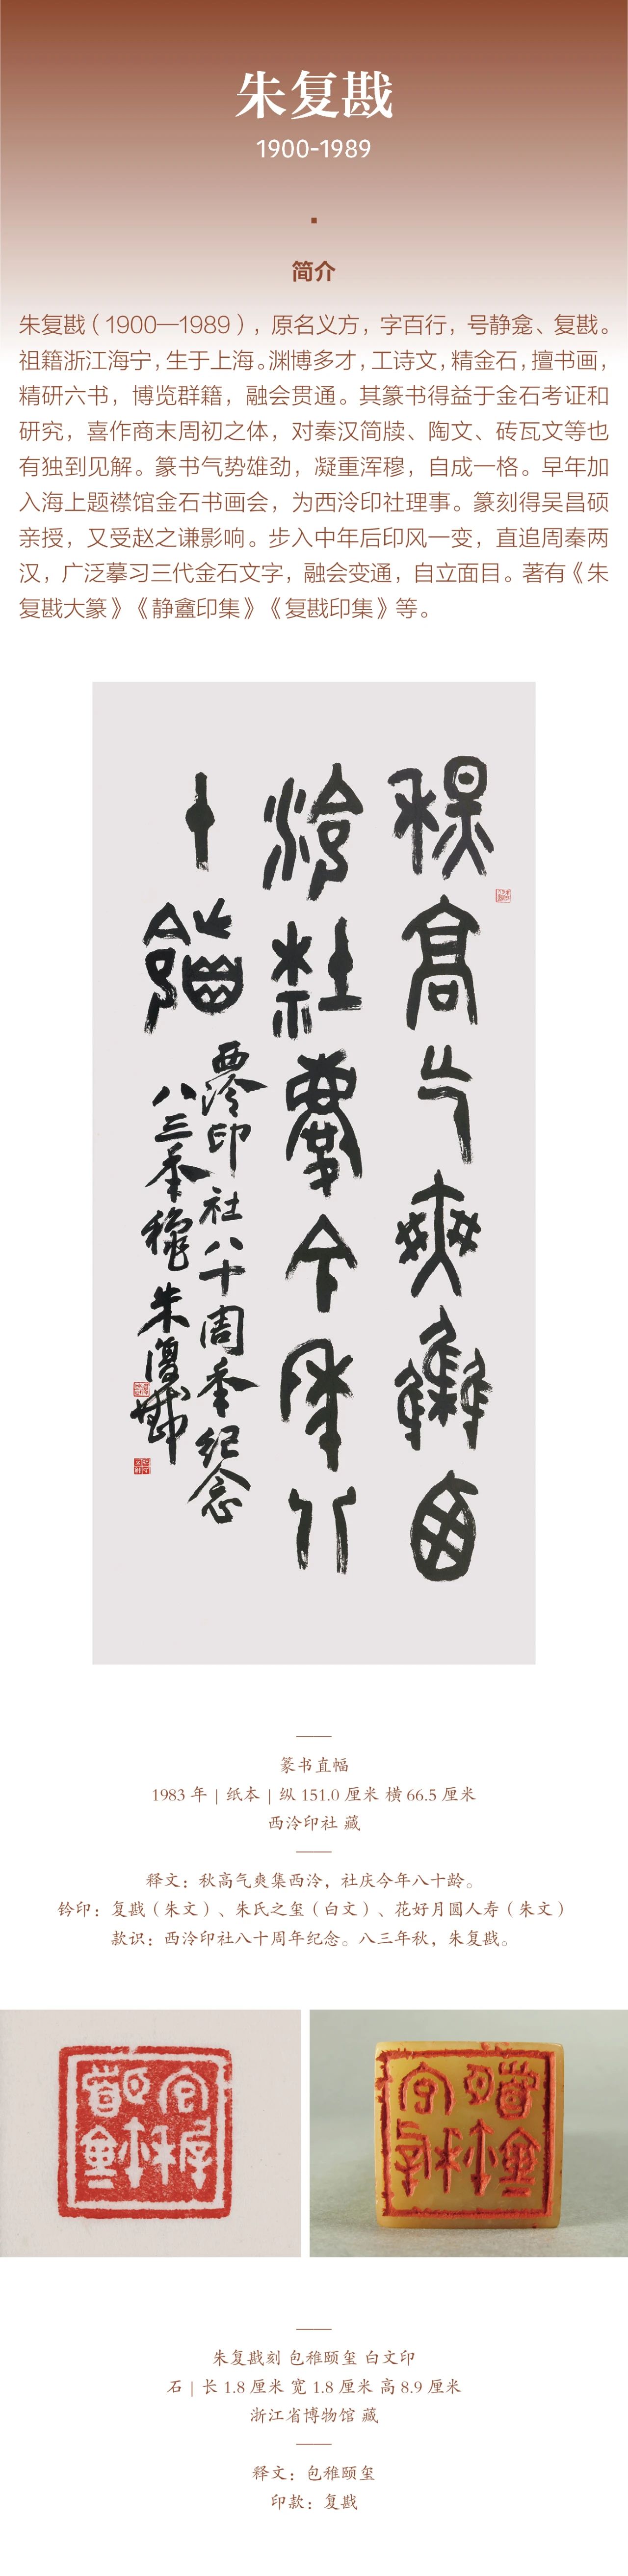 朱复戡
1900-1989
简介
朱复戡（1900—1989），原名义方，字百行，号静龛、复戡。
祖籍浙江海宁，生于上海。渊博多才，工诗文，精金石，擅书画，
精研六书，博览群籍，融会贯通。其篆书得益于金石考证和
研究，喜作商末周初之体，对秦汉简牍、陶文、砖瓦文等也
有独到见解。篆书气势雄劲，凝重浑穆，自成一格。早年加
入海上题襟馆金石书画会，为西泠印社理事。篆刻得吴昌硕
亲授，又受赵之谦影响。步入中年后印风一变，直追周秦两
汉，广泛摹习三代金石文字，融会变通，自立面目。著有《朱
复戡大篆》《静龕印集》《复戡印集》等。
秋高气爽集西
泠社庆今年八
十龄
西泠印社八十周年纪念
八三年秋朱复戡
篆书直幅
1983 年 | 纸本 | 纵 151.0 厘米 横 66.5 厘米
西泠印社 藏
释文：秋高气爽集西泠，社庆今年八十龄。
钤印：复戡（朱文）、朱氏之玺（白文）、花好月圆人寿（朱文）
款识：西泠印社八十周年纪念。八三年秋，朱复戡。
朱复戡刻 包稚颐玺 白文印
石 | 长 1.8 厘米 宽 1.8 厘米 高 8.9 厘米
浙江省博物馆 藏
释文：包稚颐玺
印款：复戡